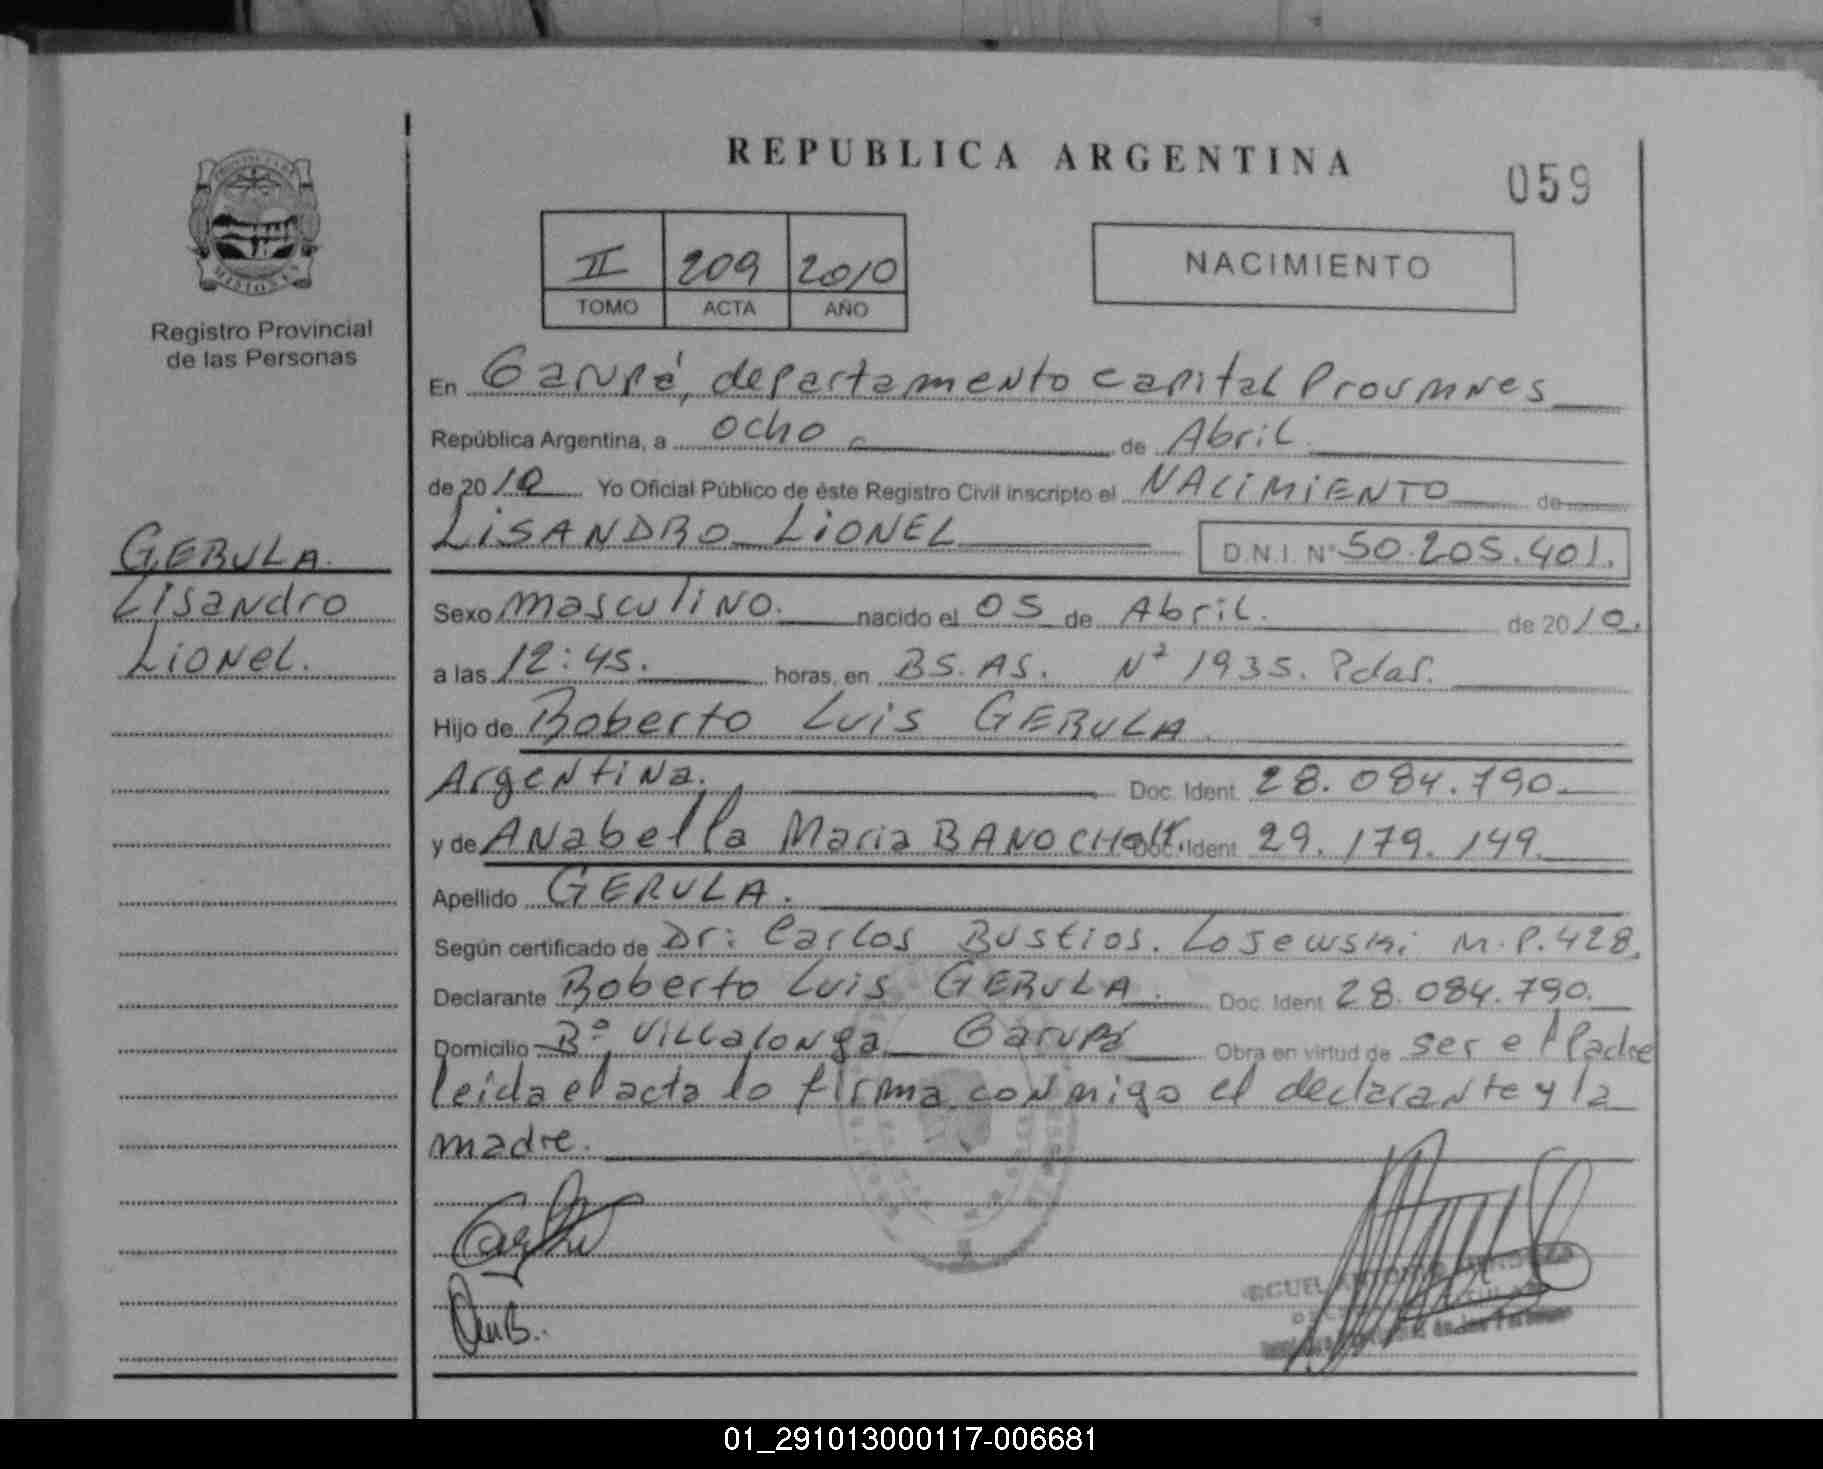 REPUBLICA ARGENTINA
059
II 209 2010
TOMO ACTA AÑO
NACIMIENTO
Registro Provincial
de las Personas
GERULA.
Lisandro
Lionel.
En Garupá, departamento Capital Prov Mnes
República Argentina, a ocho de Abril.
de 2010 Yo Oficial Público de éste Registro Civil inscripto el NACIMIENTO de
LISANDRO LIONEL D.N.I. Nº 50.205.401.
Sexo masculino. nacido el 05 de Abril. de 2010.
a las 12:45. horas, en BS. AS. Nº 1935. Pdas.
Hijo de Roberto Luis GERULA.
Argentina. Doc. Ident. 28.084.790.
y de Anabella Maria BANO Doc. Ident. 29.179.149.
Apellido GERULA.
Según certificado de Dr: Carlos Bustios. Losewski M.P.428.
Declarante Roberto Luis GERULA. Doc. Ident. 28.084.790.
Domicilio Bº Villalonga Garupá Obra en virtud de ser el Padre
leida el acta lo firma conmigo el declarante y la
madre.
01_291013000117-006681